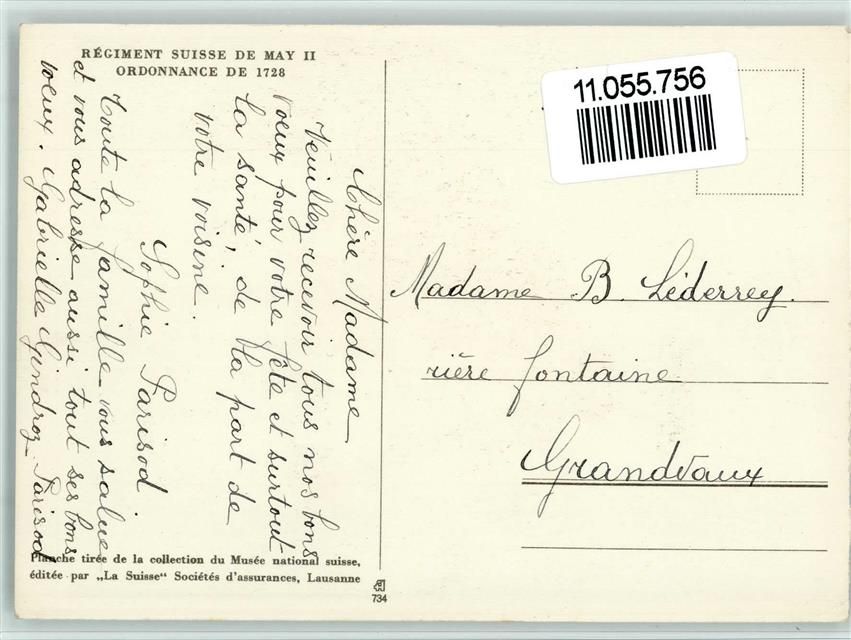 RÉGIMENT SUISSE DE MAY II
ORDONNANCE DE 1728
11.055.756
Chère Madame
Veuillez recevoir tous nos bons
vœux pour votre fête et surtout
la santé, de la part de
votre voisine.
Sophie Parisod
Toute la famille vous salue
et vous adresse aussi tout ses bons
vœux. Gabrielle Gindroz-Parisod
Madame B. Léderrey.
rière fontaine
Grandvaux
Planche tirée de la collection du Musée national suisse,
éditée par „La Suisse“ Sociétés d'assurances, Lausanne
734